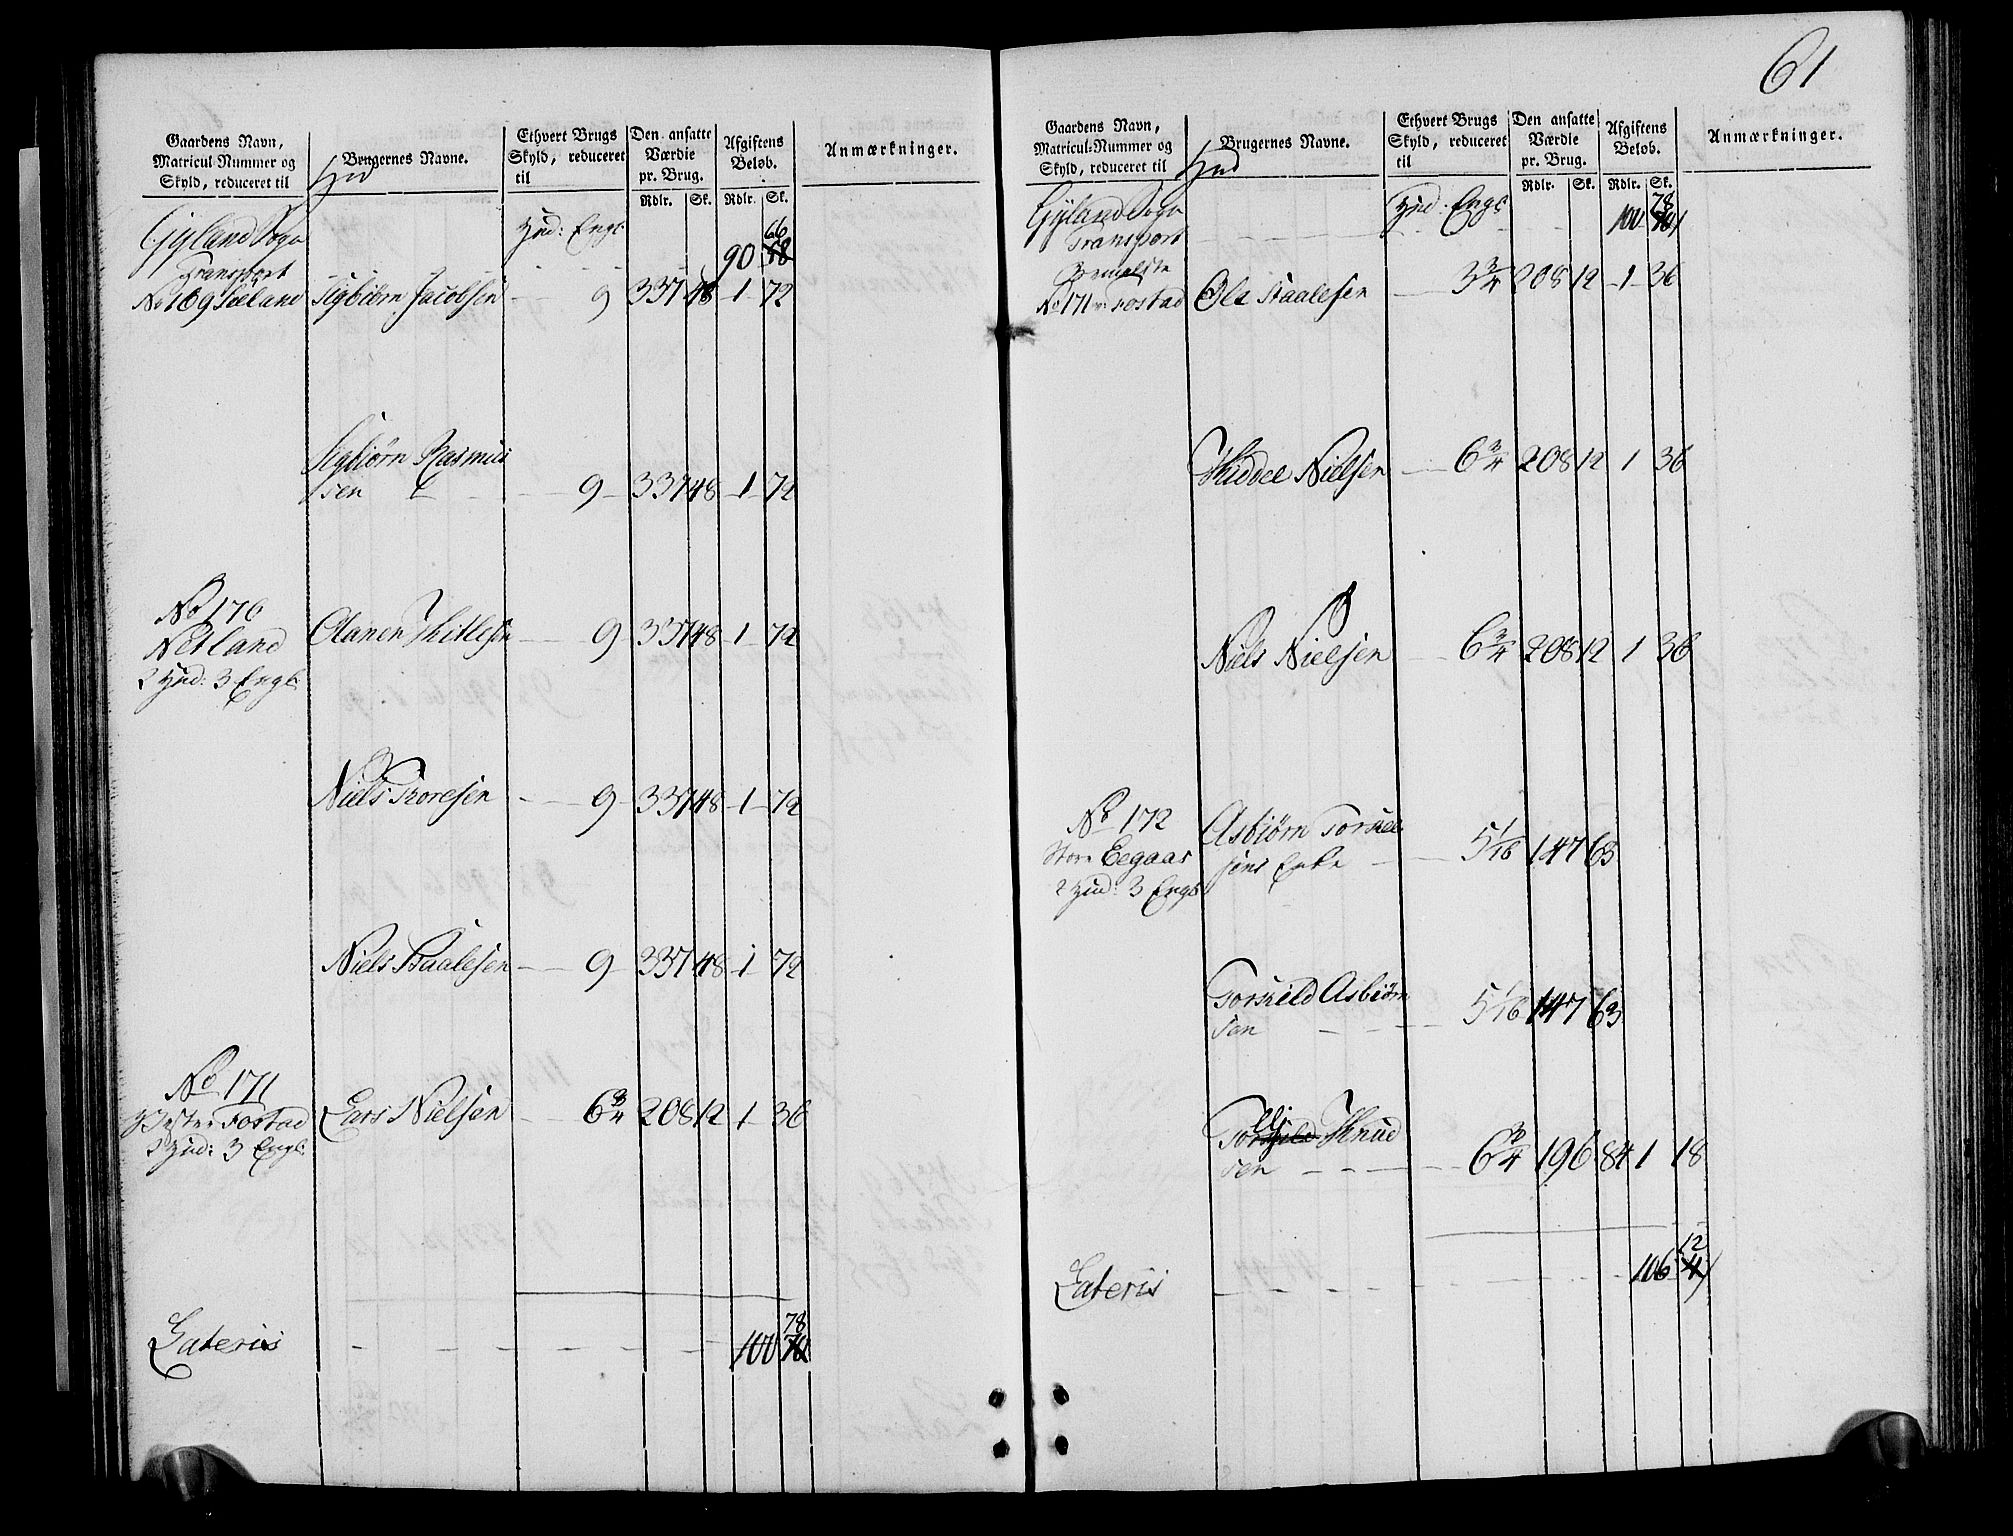 Gaardens Navn, Matricul-Nummer og Skyld, reduceret til Hud | Brugernes Navne. | Ethvert Brugs Skyld, reduceret til | Den ansatte Værdie pr. Brug. Rdlr. Sk. | Afgiftens Beløb. Rdlr. Sk. | Anmærkninger.
Gyland Sogn Hud: Engl: 66
Transport 90 58
No 169 Sæland Sigbiørn Jacobsen 9 337 48 1 72
Sigbiørn Rasmus
sen 9 337 48 1 72
No 170
Netland Ananen Kitlesen 9 337 48 1 72
2 Hud: 3 Engl:
Niels Toresen 9 337 48 1 72
Niels Staalesen 9 337 48 1 72
No 171
Vester Fostad Lars Nielsen 6 3/4 208 12 1 36
3 Hud: 3 Engl:
78
Lateris 100 70
61
Gaardens Navn, Matricul-Nummer og Skyld, reduceret til Hud | Brugernes Navne. | Ethvert Brugs Skyld, reduceret til | Den ansatte Værdie pr. Brug. Rdlr. Sk. | Afgiftens Beløb. Rdlr. Sk. | Anmærkninger.
Gyland Sogn Hud: Engl: 78
Transport 100 70
No 171 Fostad Ole Staalesen 3 3/4 208 12 1 36
Kiddel Nielsen 6 3/4 208 12 1 36
Niels Nielsen 6 3/4 208 12 1 36
No 172 Asbiørn Torkel
Store Eegaas sens Enke 5 1/16 147 63
2 Hud: 3 Engl:
Torkild Asbiørn
sen 5 1/16 147 63
Knud
sen 6 3/4 196 84 1 18
12
Lateris 106 4